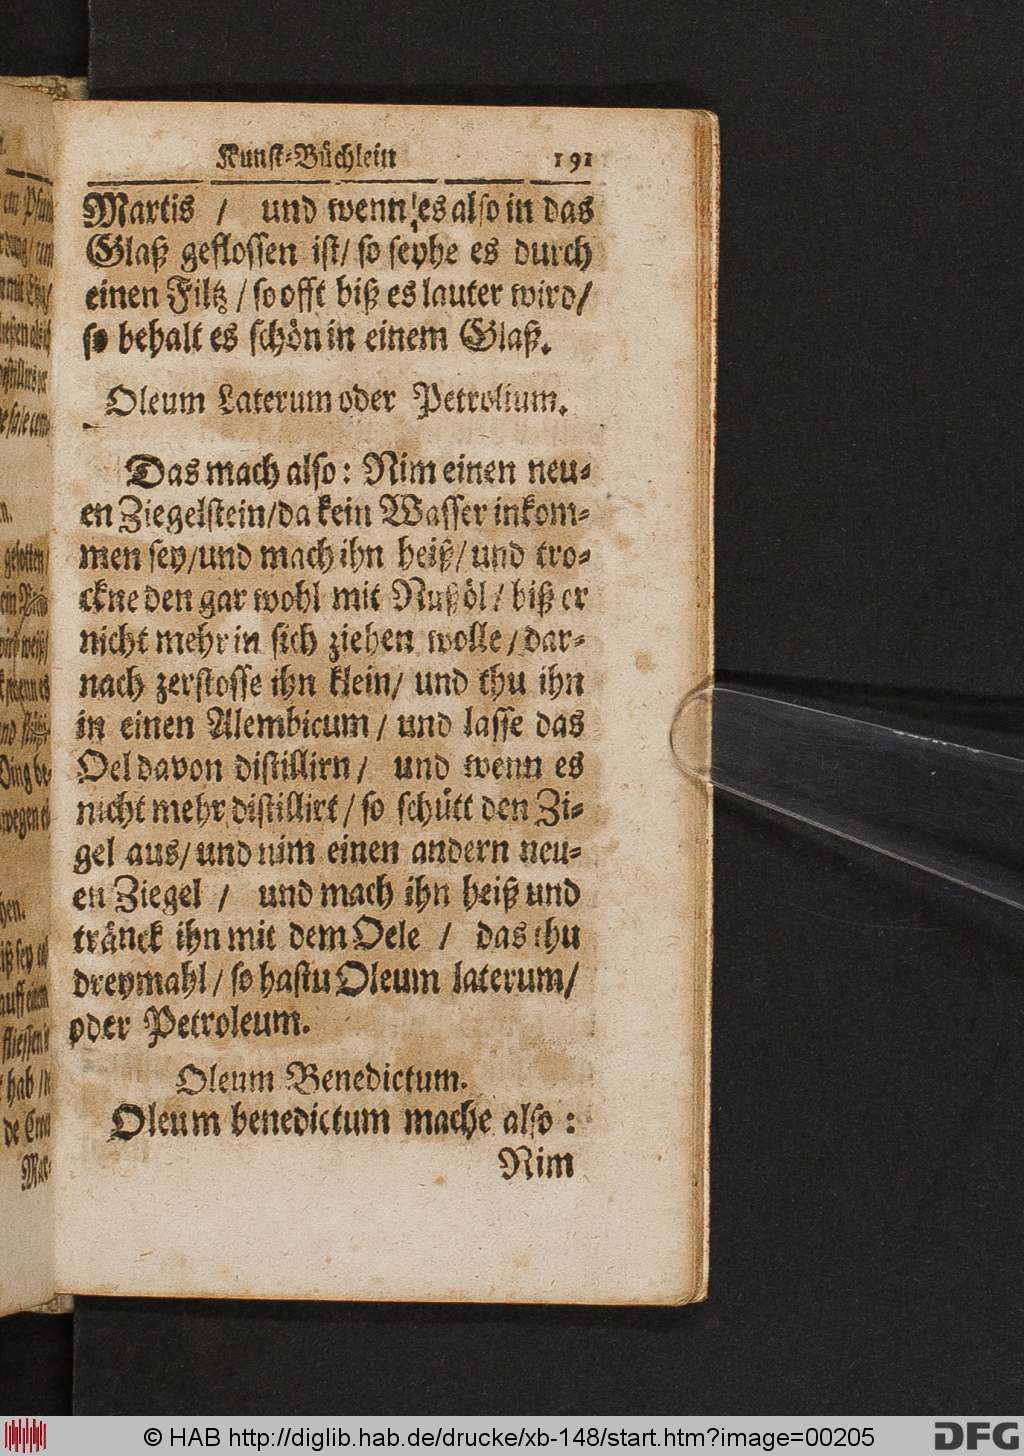 Kunst-Büchlein 191
Martis / und wenn es also in das
Glaß geflossen ist / so seyhe es durch
einen Filtz / so offt biß es lauter wird /
so behalt es schön in einem Glaß.
Oleum Laterum oder Petrolium.
Das mach also: Nim einen neu-
en Ziegelstein / da kein Wasser inkom-
men sey / und mach ihn heiß / und tro-
ckne den gar wohl mit Nußöl / biß er
nicht mehr in sich ziehen wolle / dar-
nach zerstosse ihn klein / und thu ihn
in einen Alembicum / und lasse das
Oel davon distillirn / und wenn es
nicht mehr distillirt / so schütt den Zi-
gel aus / und nim einen andern neu-
en Ziegel / und mach ihn heiß und
tränck ihn mit dem Oele / das thu
dreymahl / so hastu Oleum laterum /
oder Petroleum.
Oleum Benedictum.
Oleum benedictum mache also:
Nim
© HAB http://diglib.hab.de/drucke/xb-148/start.htm?image=00205
DFG